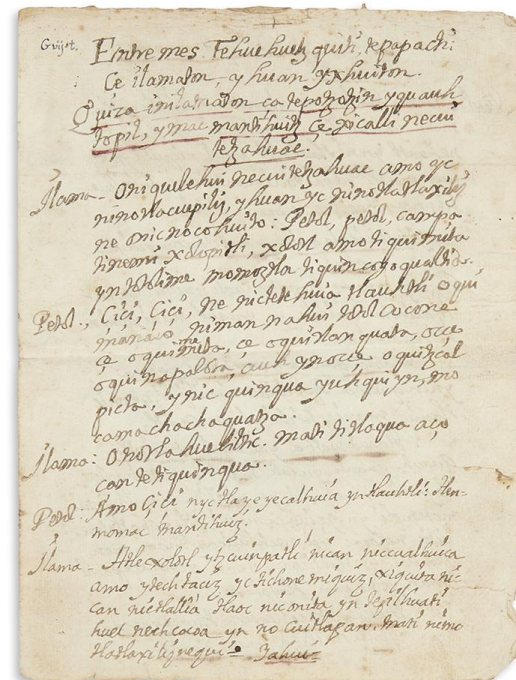 Guijot.
Entremes Tehuehuetzquiti, tepapacti:
Ce ilamaton, yhuan yxhuiton.
Quiza in ilamaton ca tepotzotzin yquauh
topil, ymac mantihuitz Çe xicalli necui
tetzahuac.
Ilama - Oniquilehui necuitetzahuac amo yc
ninotlacuepiliz, yhuan yc ninotlatlaxiliz
ne onicnocohuito: Petol, petol, campa
tinemi xolopitli, xolotl amo tiquimita
yntotolime momoztla tiquincoyoqualtia.
Petol., Cici, Cici, ne nictetehuia tlauhtli oqui
niman nahui totolcocone
ce oquimita, ce oquitlanquata, occe
oquinapaloa, ynocce oquitzcal
picta, ynic quinqua yuhquiyn, mo
camachachaquatza.
Ilama: Onotlahuelitic. mati titlaqua aço
can tetiquinqua.
Petol: Amo Cici nyctlazeyecalhuia yn tlauhtli: tlen
momac mantihuiz.
Ilama - Atlecxolotl ytzcuinpatli nican niccualhuica
amo ytechtaciz yctichonemiquiz, xiquita ni
can nictlallia tlaoc niconita yn tepilhuati
huel nechcocoa yn no Cuitlapan. mati nimo
tlatlaxiliznequi. Yahui-